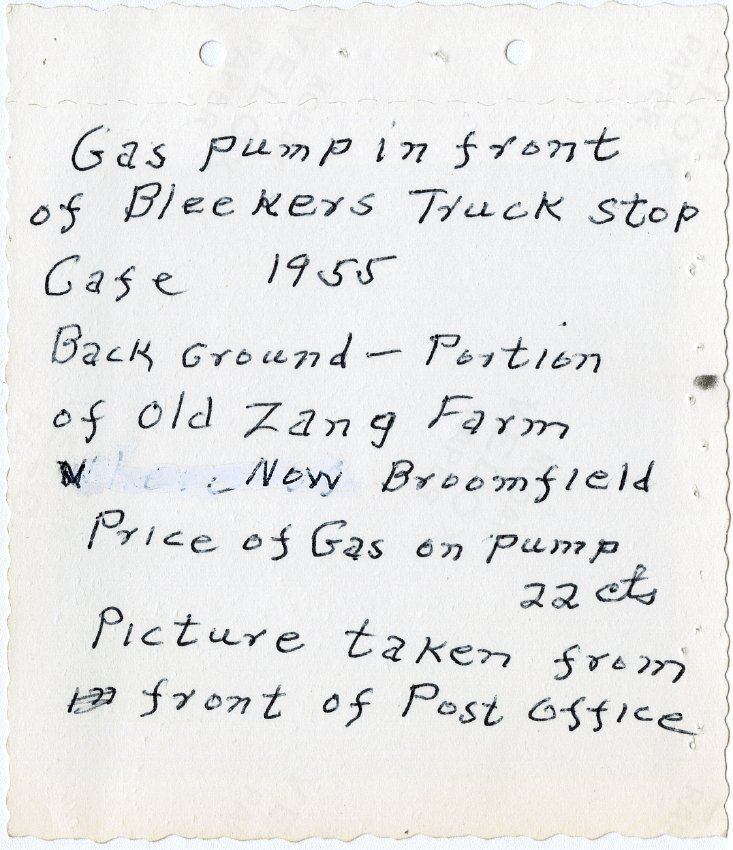 Gas pump in front
of Bleekers Truck stop
Cafe 1955
Back Ground - Portion
of Old Zang Farm
Now Broomfield
Price of Gas on pump
22 cts
Picture taken from
front of Post Office